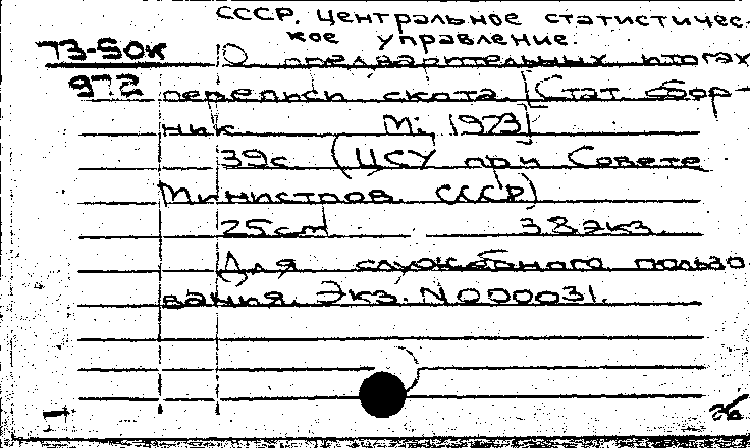 СССР. Центральное статистичес-
кое управление.
73-50к
О предварительных итогах
972
переписи скота [Стат. сбор-
ник. М., 1973]
39с. (ЦСУ при Совете
Министров СССР)
25см 38экз.
Для служебного пользо
вания. Экз. N000031.